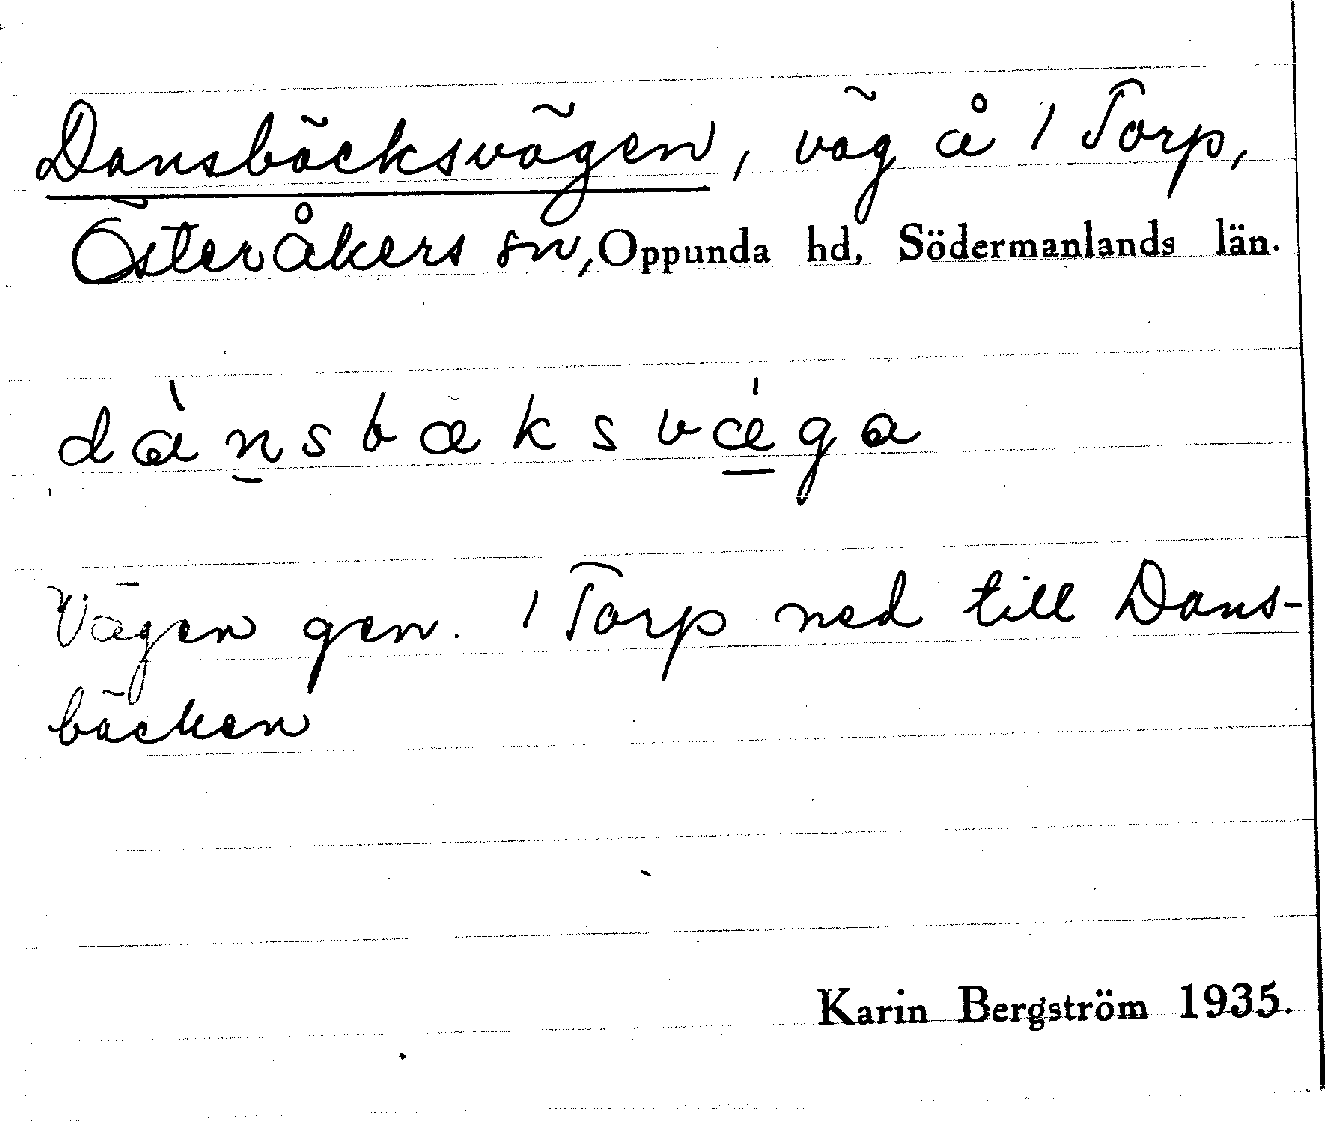 Dansbäcksvägen, väg å 1 Torp,
Österåkers sn, Oppunda hd, Södermanlands län.
dànsbæksvǽga
Vägen gen. 1 Torp ned till Dans-
bäcken
Karin Bergström 1935.